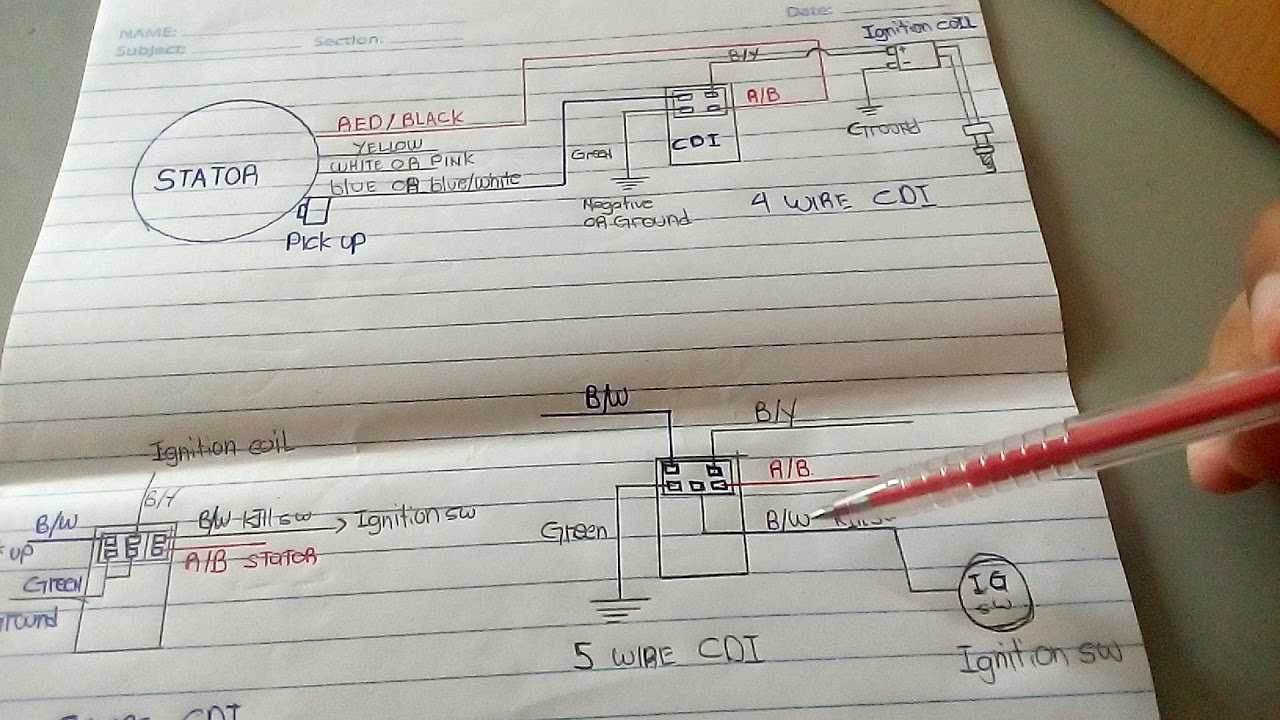 NAME:
Date:
Subject:
Section:
Ignition coil
B/Y
RED/BLACK
R/B
YELLOW
WHITE OR PINK
BLUE OR blue/white
STATOR
CDI
Green
Ground
Negative
OR Ground
4 WIRE CDI
Pick up
B/W
B/Y
Ignition coil
R/B.
B/Y
B/W
B/W Kill sw
Ignition sw
B/W
up
R/B STATOR
Green
Green
Ground
IG
SW
5 WIRE CDI
Ignition SW
WIRE CDI